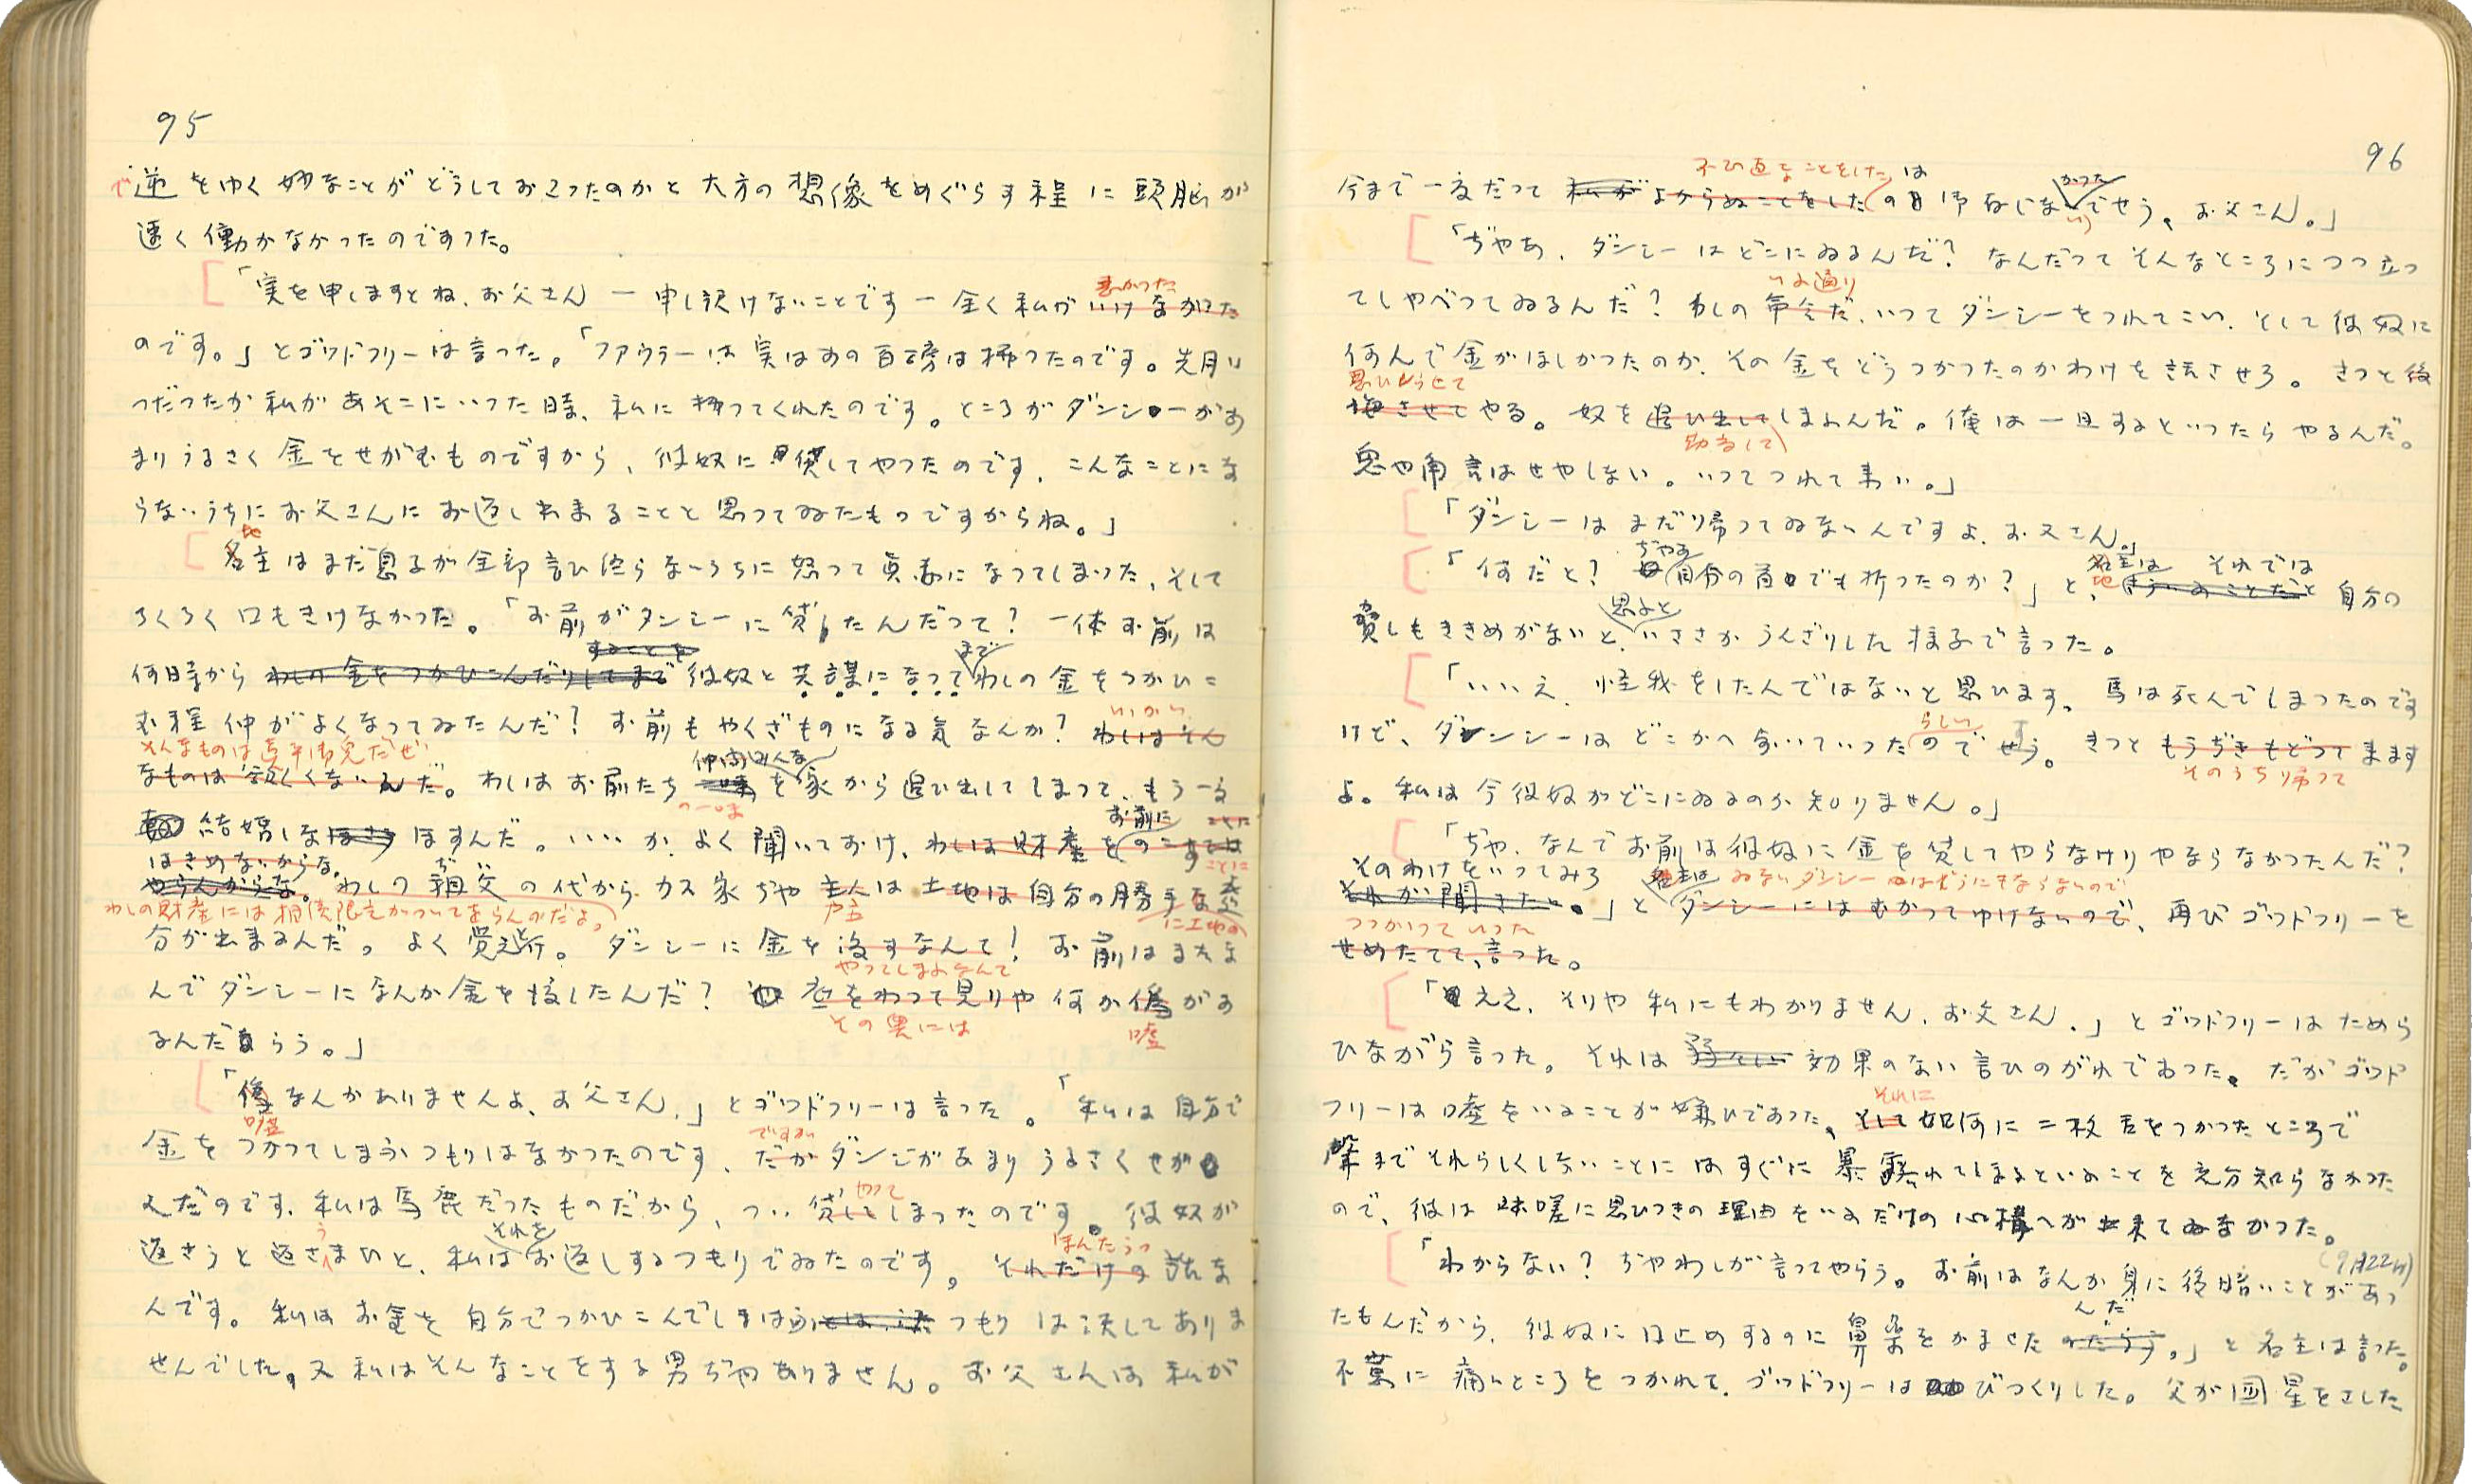 95
で逆をゆく妙なことがどうしておこつたのかと大方の想像をめぐらす程に頭脳が
速く働かなかつたのですつた。
「実を申しますとね、お父さん ー 申し訳けないことです ー 全く私がいけなかつた
悪かつた
のです。」とゴツドフリーは言つた。「フアウラーは実はあの百磅は払つたのです。先月い
つだつたか私があそこにいつた時、私に払つてくれたのです。ところがダンシーがあ
まりうるさく金をせがむものですから、彼奴に貸してやつたのです、こんなことにな
らないうちにお父さんにお返し出来ることと思つてゐたものですからね。」
地
名主はまだ息子が全部言ひ終らないうちに怒つて真赤になつてしまつた、そして
ろくろく口もきけなかつた。「お前がダンシーに貸したんだつて？ 一体お前は
することを
まで
何時からわしの金をつかひこんだりしてまで彼奴と共謀になつてわしの金をつかひこ
む程仲がよくなつてゐたんだ？ お前もやくざものになる気なんか？ わしはそん
いいかい
そんなものは真平御免だぜ
仲間みんな
なものは欲しくないんだ。わしはお前たちを家から追ひ出してしまつて、もう一度
の一味
お前に
ことに
結婚しなほすんだ。いゝか、よく聞いておけ、わしは財産をのこすては
ことに
はきめないからな。
やらんからな。わしの祖父の代からカス家ぢや主人は土地は自分の勝手な處
ぢゞ
や主
わしの財産には相続限定がついてをらんのだよ。
に土地の
分が出来るんだ。よく覚えと行。ダンシーに金を渡すなんて！ お前はまたな
やつてしまふなんて
んでダンシーになんか金を渡したんだ？ 底をわつて見りや何か偽があ
その裏には
嘘
るんだらう。」
「偽なんかありませんよ、お父さん、」とゴツドフリーは言つた。「私は自分で
嘘
ですが
金をつかつてしまふつもりはなかつたのです、だがダンシがあまりうるさくせが
やつて
んだのです、私は馬鹿だつたものだから、つい貸してしまつたのです。彼奴が
う
それを
ほんたうの
返さうと返さまひと、私はお返しするつもりでゐたのです。それだけの話な
んです。私はお金を自分でつかひこんでしまはうつもりは決してありま
せんでした。又私はそんなことをする男ぢやありません。お父さんは私が
96
不ひ直なことをした
は
かつた
今まで一度だつて私がよからぬことをしたの御存じないでせう、お父さん。」
「ぢやあ、ダンシーはどこにゐるんだ？ なんだつてそんなところにつつ立つ
いふ通り
てしやべつてゐるんだ？ わしの命令だ、いつてダンシーをつれてこい、そして彼奴に
何んで金がほしかつたのか、その金をどうつかつたのかわけを話させろ。きつと後
思ひしらせて
悔させてやる。奴を追ひ出してしまふんだ。俺は一旦するといつたらやるんだ。
勘当して
兎や角言はせやしない。いつてつれて来い。」
「ダンシーはまだ帰つてゐないんですよ、お父さん。」
ぢやあ
名主は
それでは
「何だと？ 自分の首でも折つたのか？」と、さういふことだと自分の
地
思ふと
脅しもききめがないと、いささかうんざりした様子で言つた。
「いいえ、怪我をしたんではないと思ひます。馬は死んでしまつたのです
らしい
けど、ダンシーはどこかへ歩いていつたのでせう。きつともうぢきもどつて来ます
そのうち帰つて
よ。私は今彼奴がどこにゐるのか知りません。」
「ぢや、なんでお前は彼奴に金を貸してやらなけりやならなかつたんだ？
そのわけをいつてみろ
名主は
ゐないダンシーはどうにもならないので
それが聞きたい。」とダンシーにはむかつてゆけないので、再びゴツドフリーを
つつかかつていつた
せめたてて、言つた。
「ええ、そりや私にもわかりません、お父さん、」とゴツドフリーはためら
ひながら言つた。それは弱々しい効果のない言ひのがれであつた。だがゴツド
それに
フリーは嘘をいふことが嫌ひであつた、そして如何に二枚舌をつかつたところで
声までそれらしくしないことにはすぐに暴露れてしまふといふことを充分知らなかつた
ので、彼は咄嗟に思ひつきの理由をいふだけの心構へが出来てゐなかつた。
(9月22日)
「わからない？ ぢやわしが言つてやらう。お前はなんか身に後暗いことがあつ
んだ
たもんだから、彼奴に口止めするのに鼻薬をかませたのだらう。」と名主は言つた。
不意に痛いところをつかれて、ゴツドフリーはびつくりした。父が図星をさした